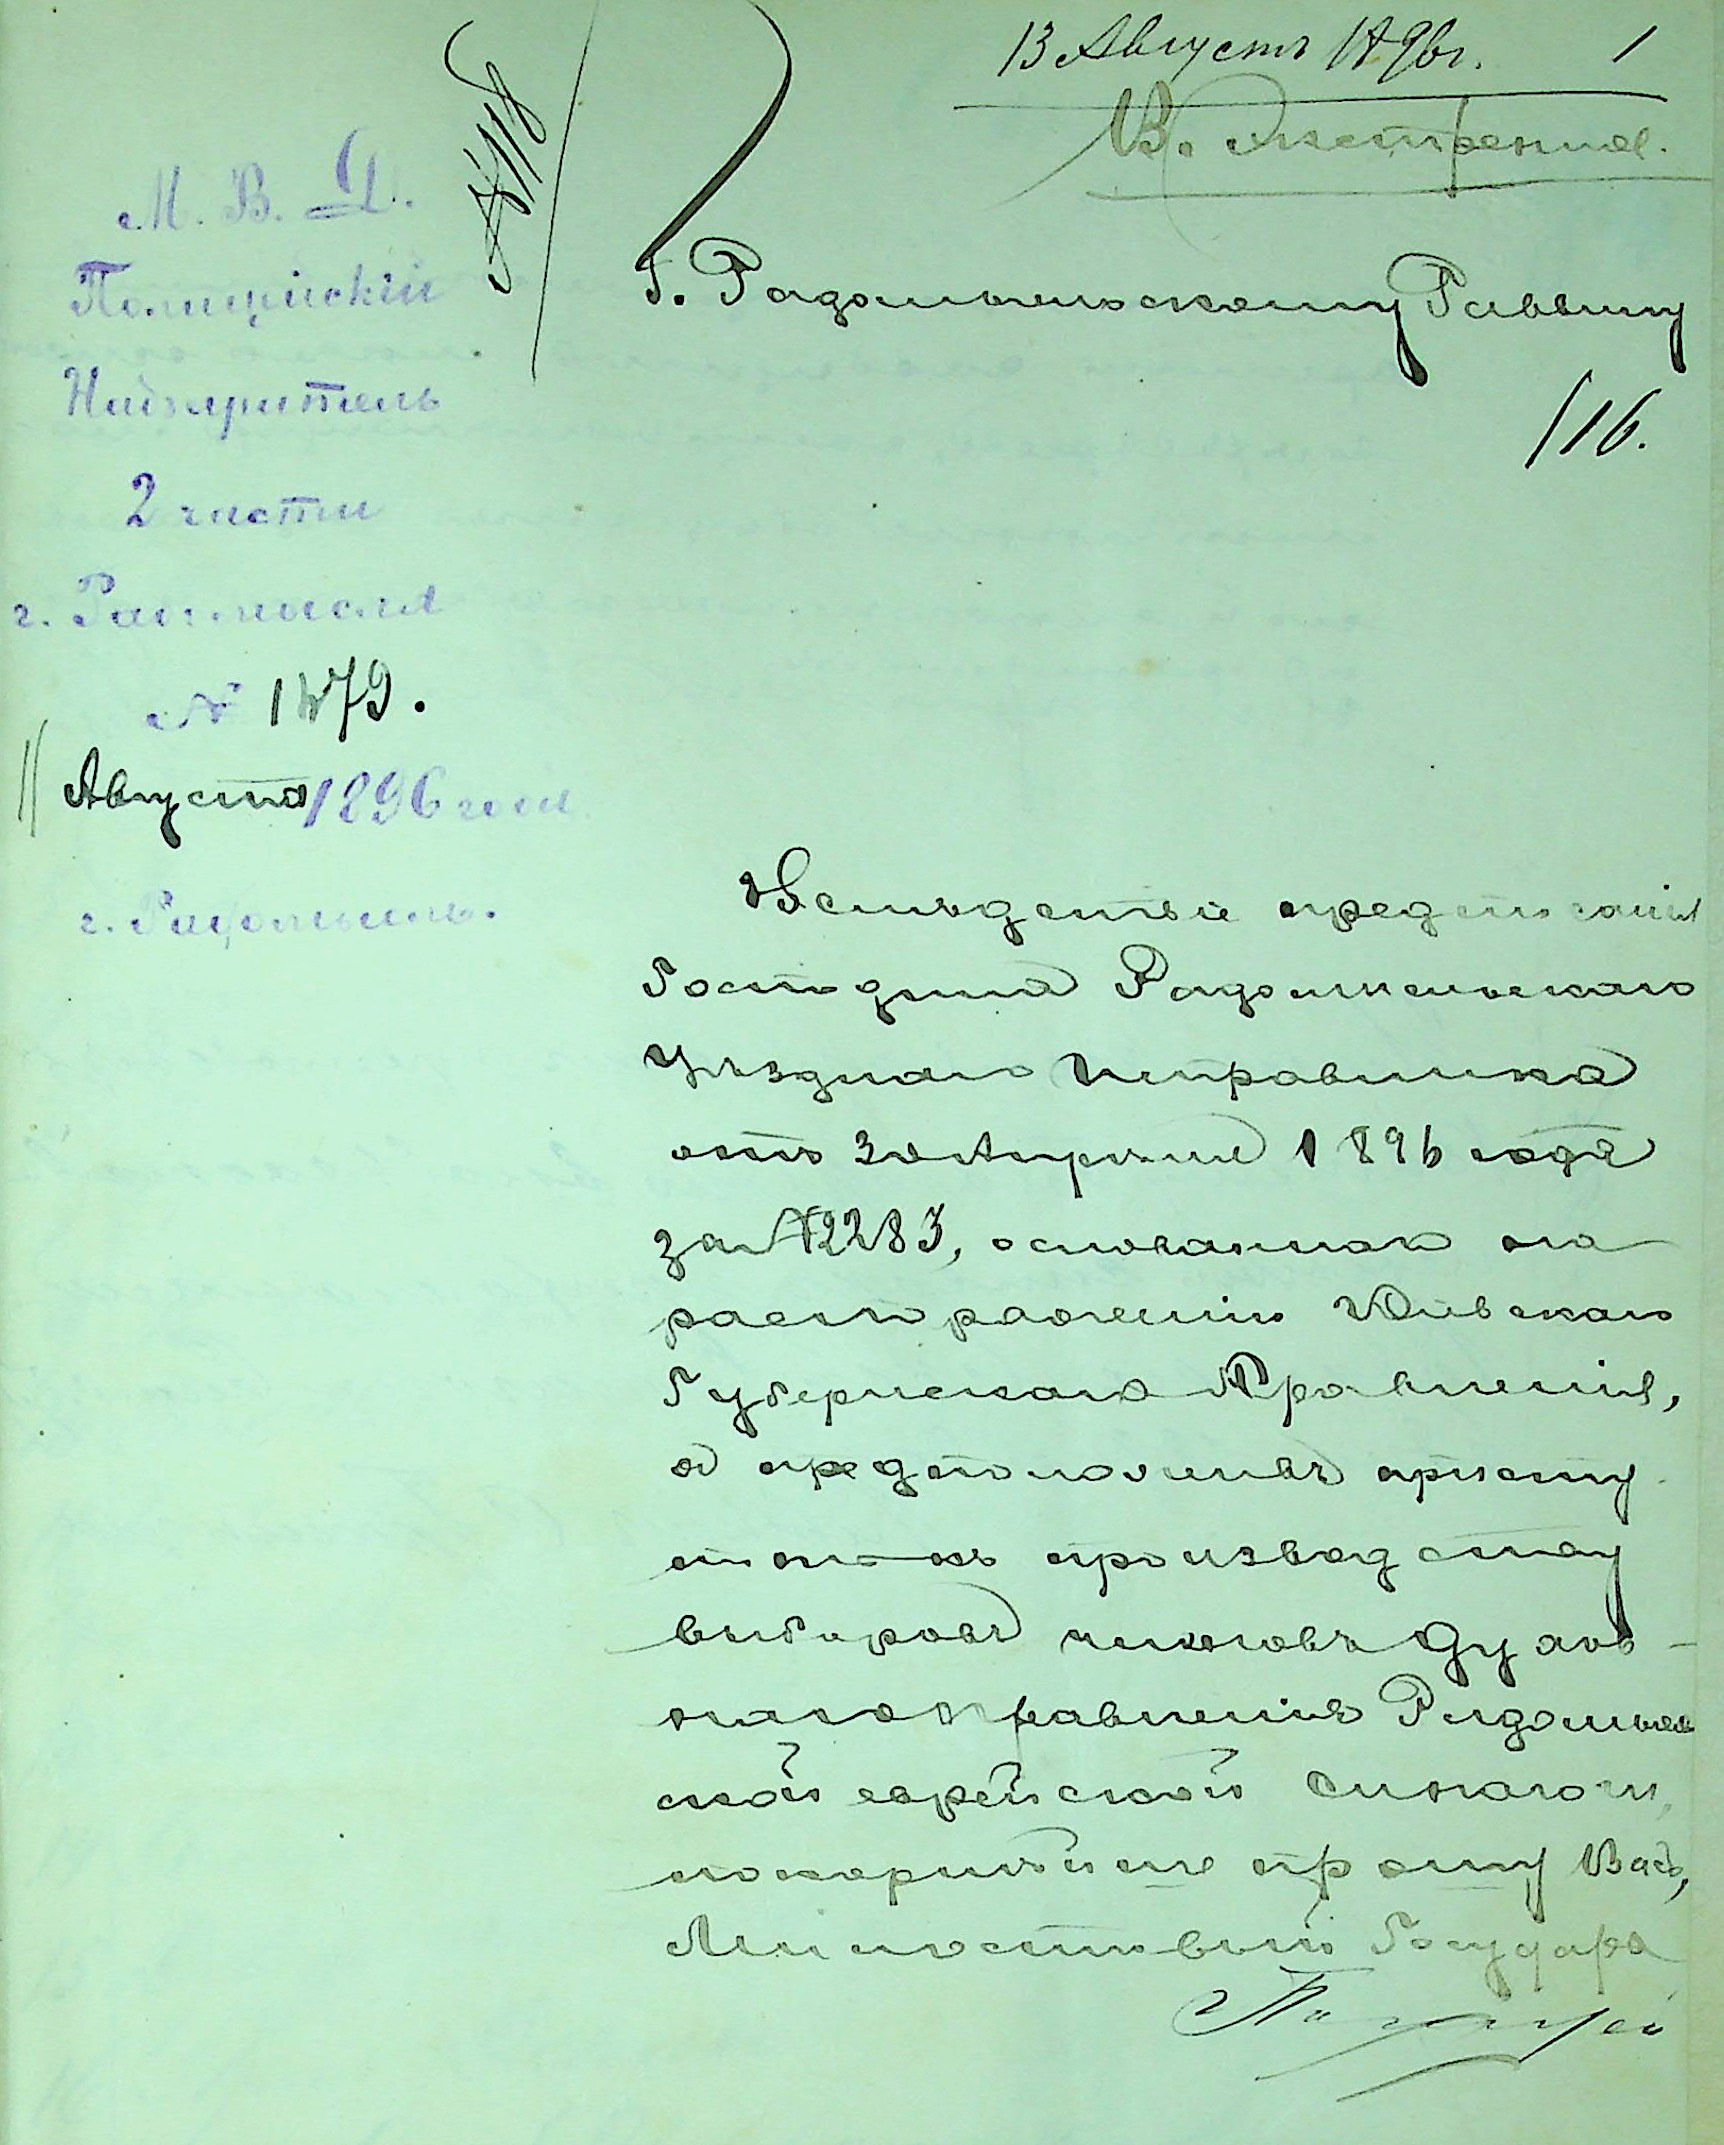 13 Августъ 1896г. 1
В. экстренное.
№ 116
М. В. Д.
Полицейскій
Надзиратель
2 части
г. Радомысля
№ 1479.
11 Августа 1896 года
г. Радомысль.
Г. Радомысльскому Раввину
116.
Вслѣдствіе предписанія
Господина Радомысльскаго
Уѣзднаго Исправника
отъ 30 Апрѣля 1896 года
за № 2283, основаннаго на
распоряженіи Кіевскаго
Губернскаго Правленія,
о предположенъ приступ
къ производству
выборовъ членовъ Духов-
наго правленія Радомысль
ской еврейской синагоги,
покорнѣйше прошу Васъ,
Милостивый Государь